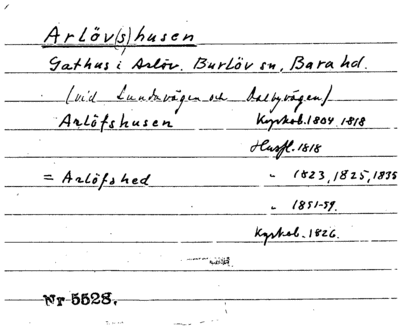 Arlöv(s)husen
Gathus i Arlöv. Burlöv sn, Bara hd.
(vid Lundavägen och Dalbyvägen)
Arlöfshusen Kyrkob. 1804, 1818
Husfl. 1818
= Arlöfshed " 1823, 1825, 1835
" 1851-59.
Kyrkob. 1826.
Nr 5528.